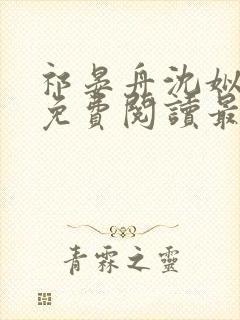 祁晏舟沈姒
免費閱讀最
青霖之靈